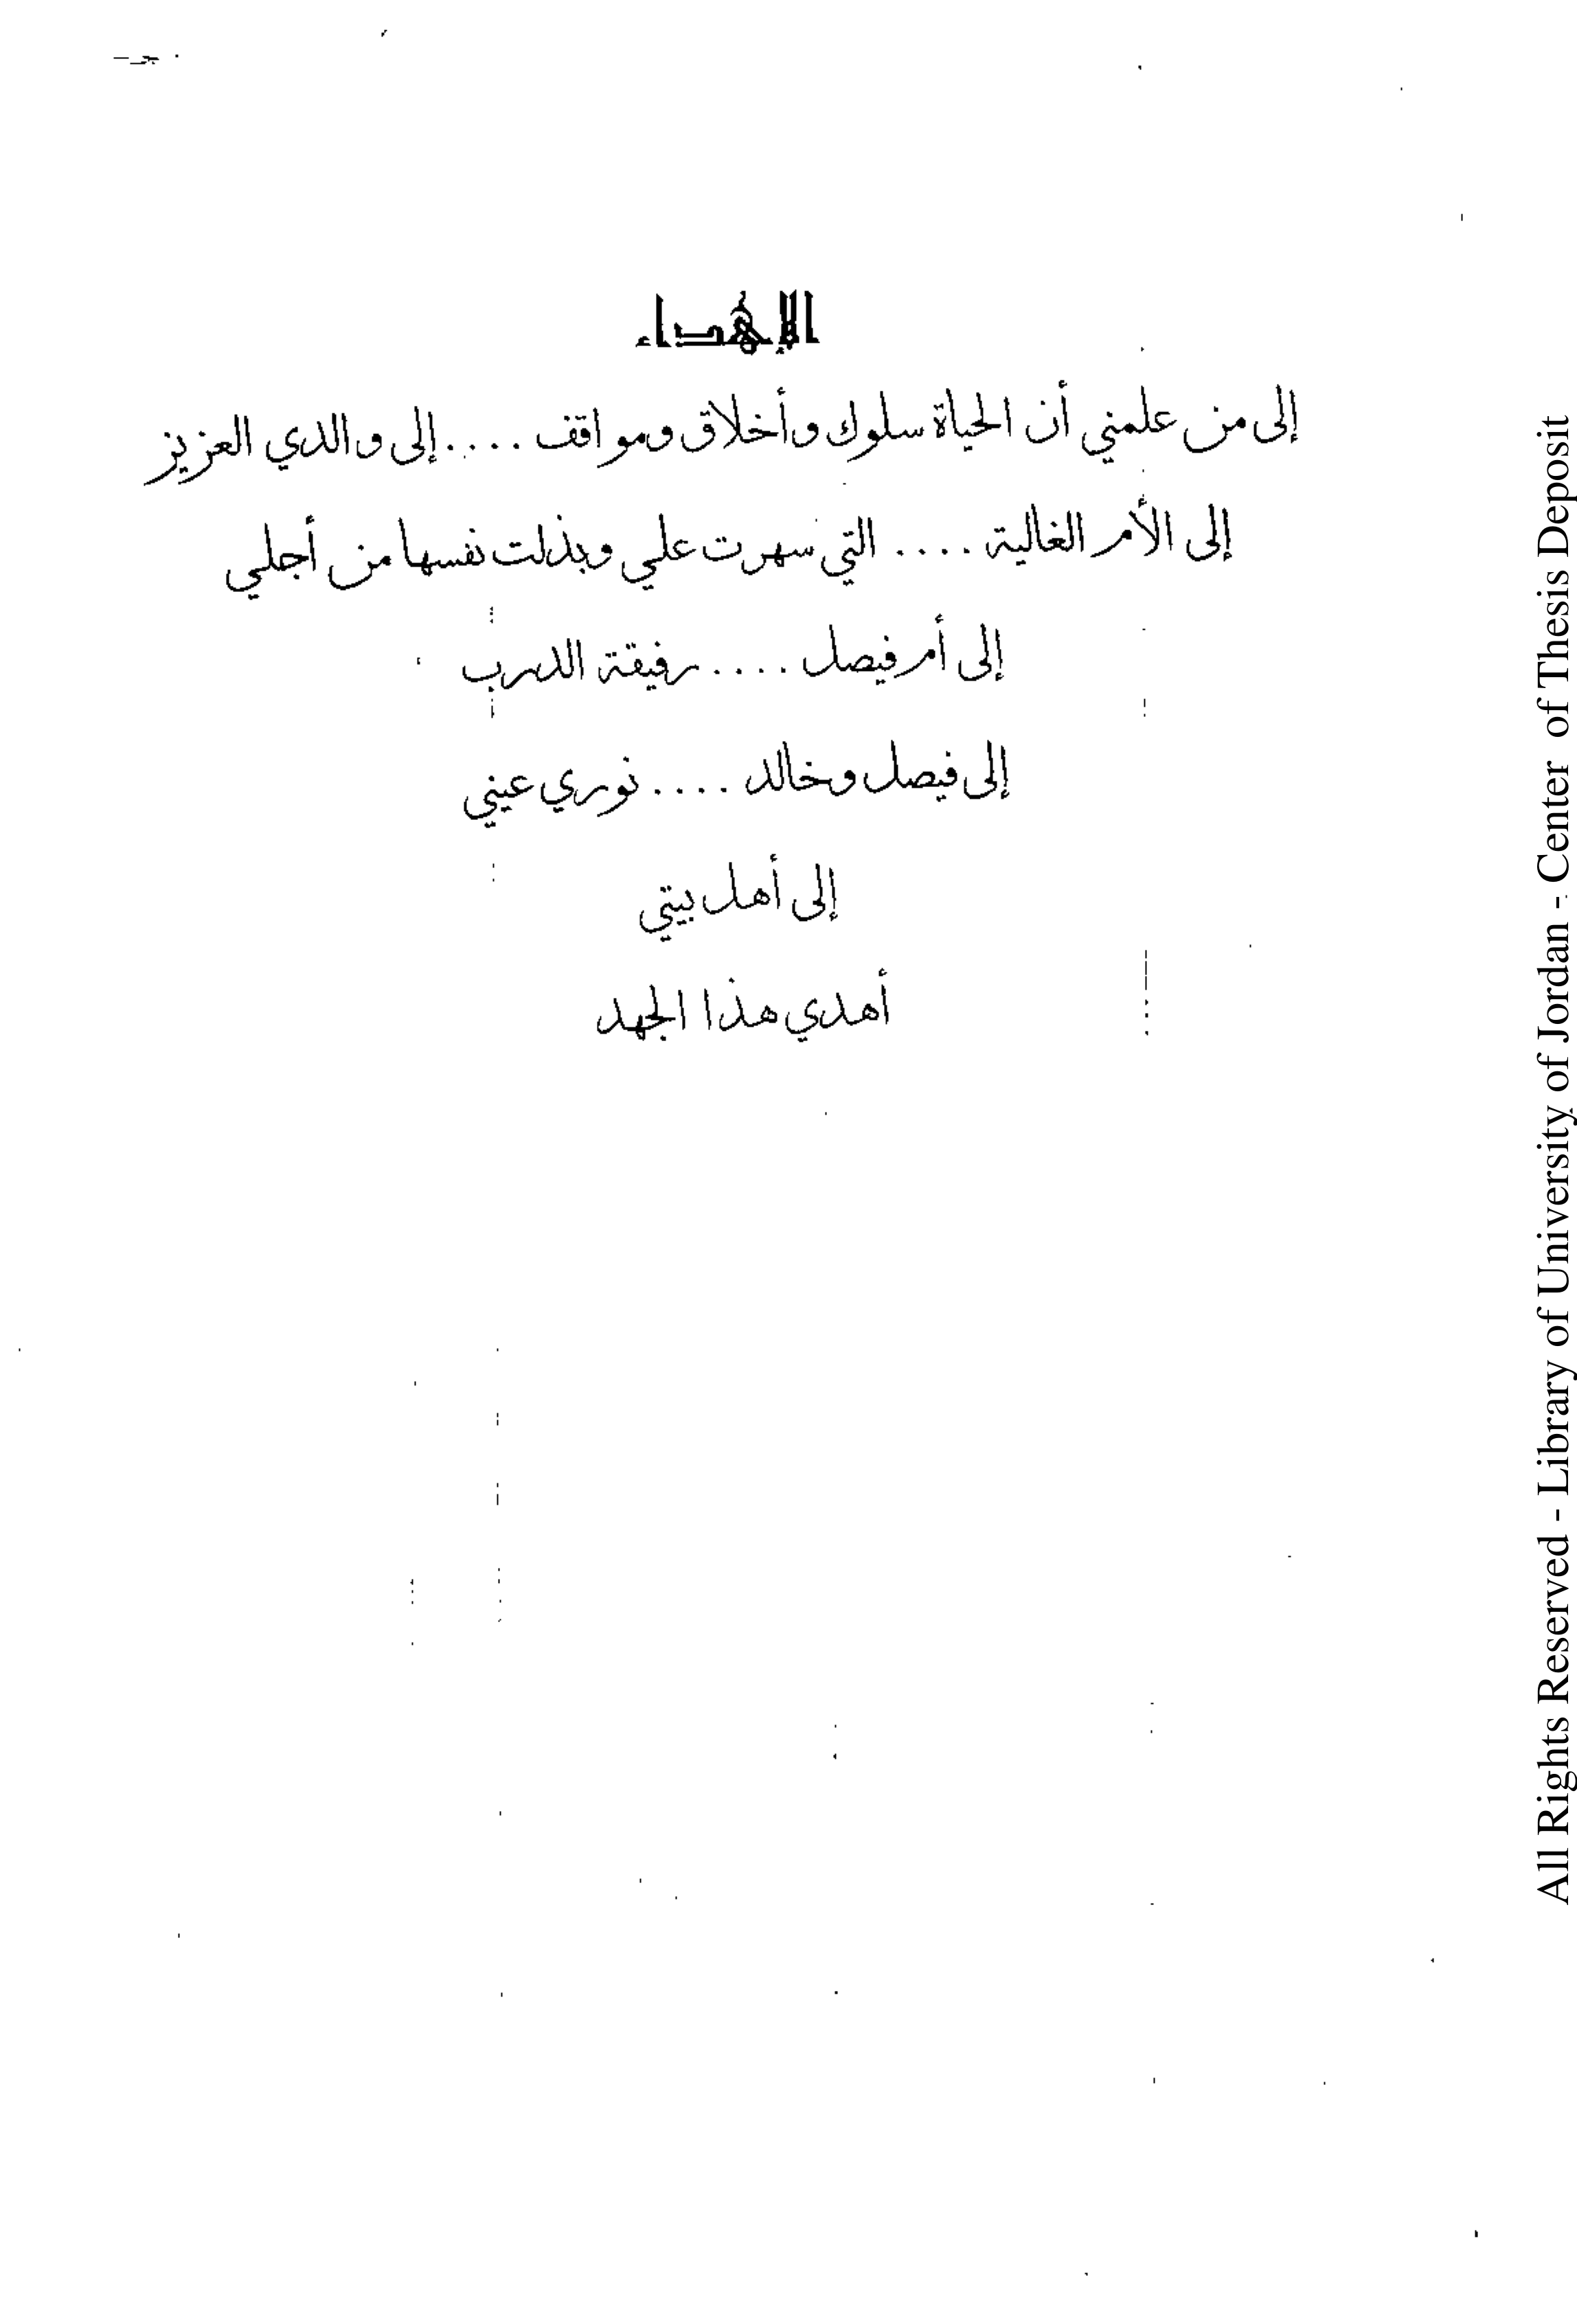 الإهداء
إلى من علمني أن الحياة سلوك وأخلاق ومواقف .... إلى والدي العزيز
إلى الأم الغالية .... التي سهرت علي وبذلت نفسها من أجلي
إلى أم فيصل .... رفيقة الدرب
إلى فيصل وخالد .... نوري عيني
إلى أهل بيتي
أهدي هذا الجهد
All Rights Reserved - Library of University of Jordan - Center of Thesis Deposit